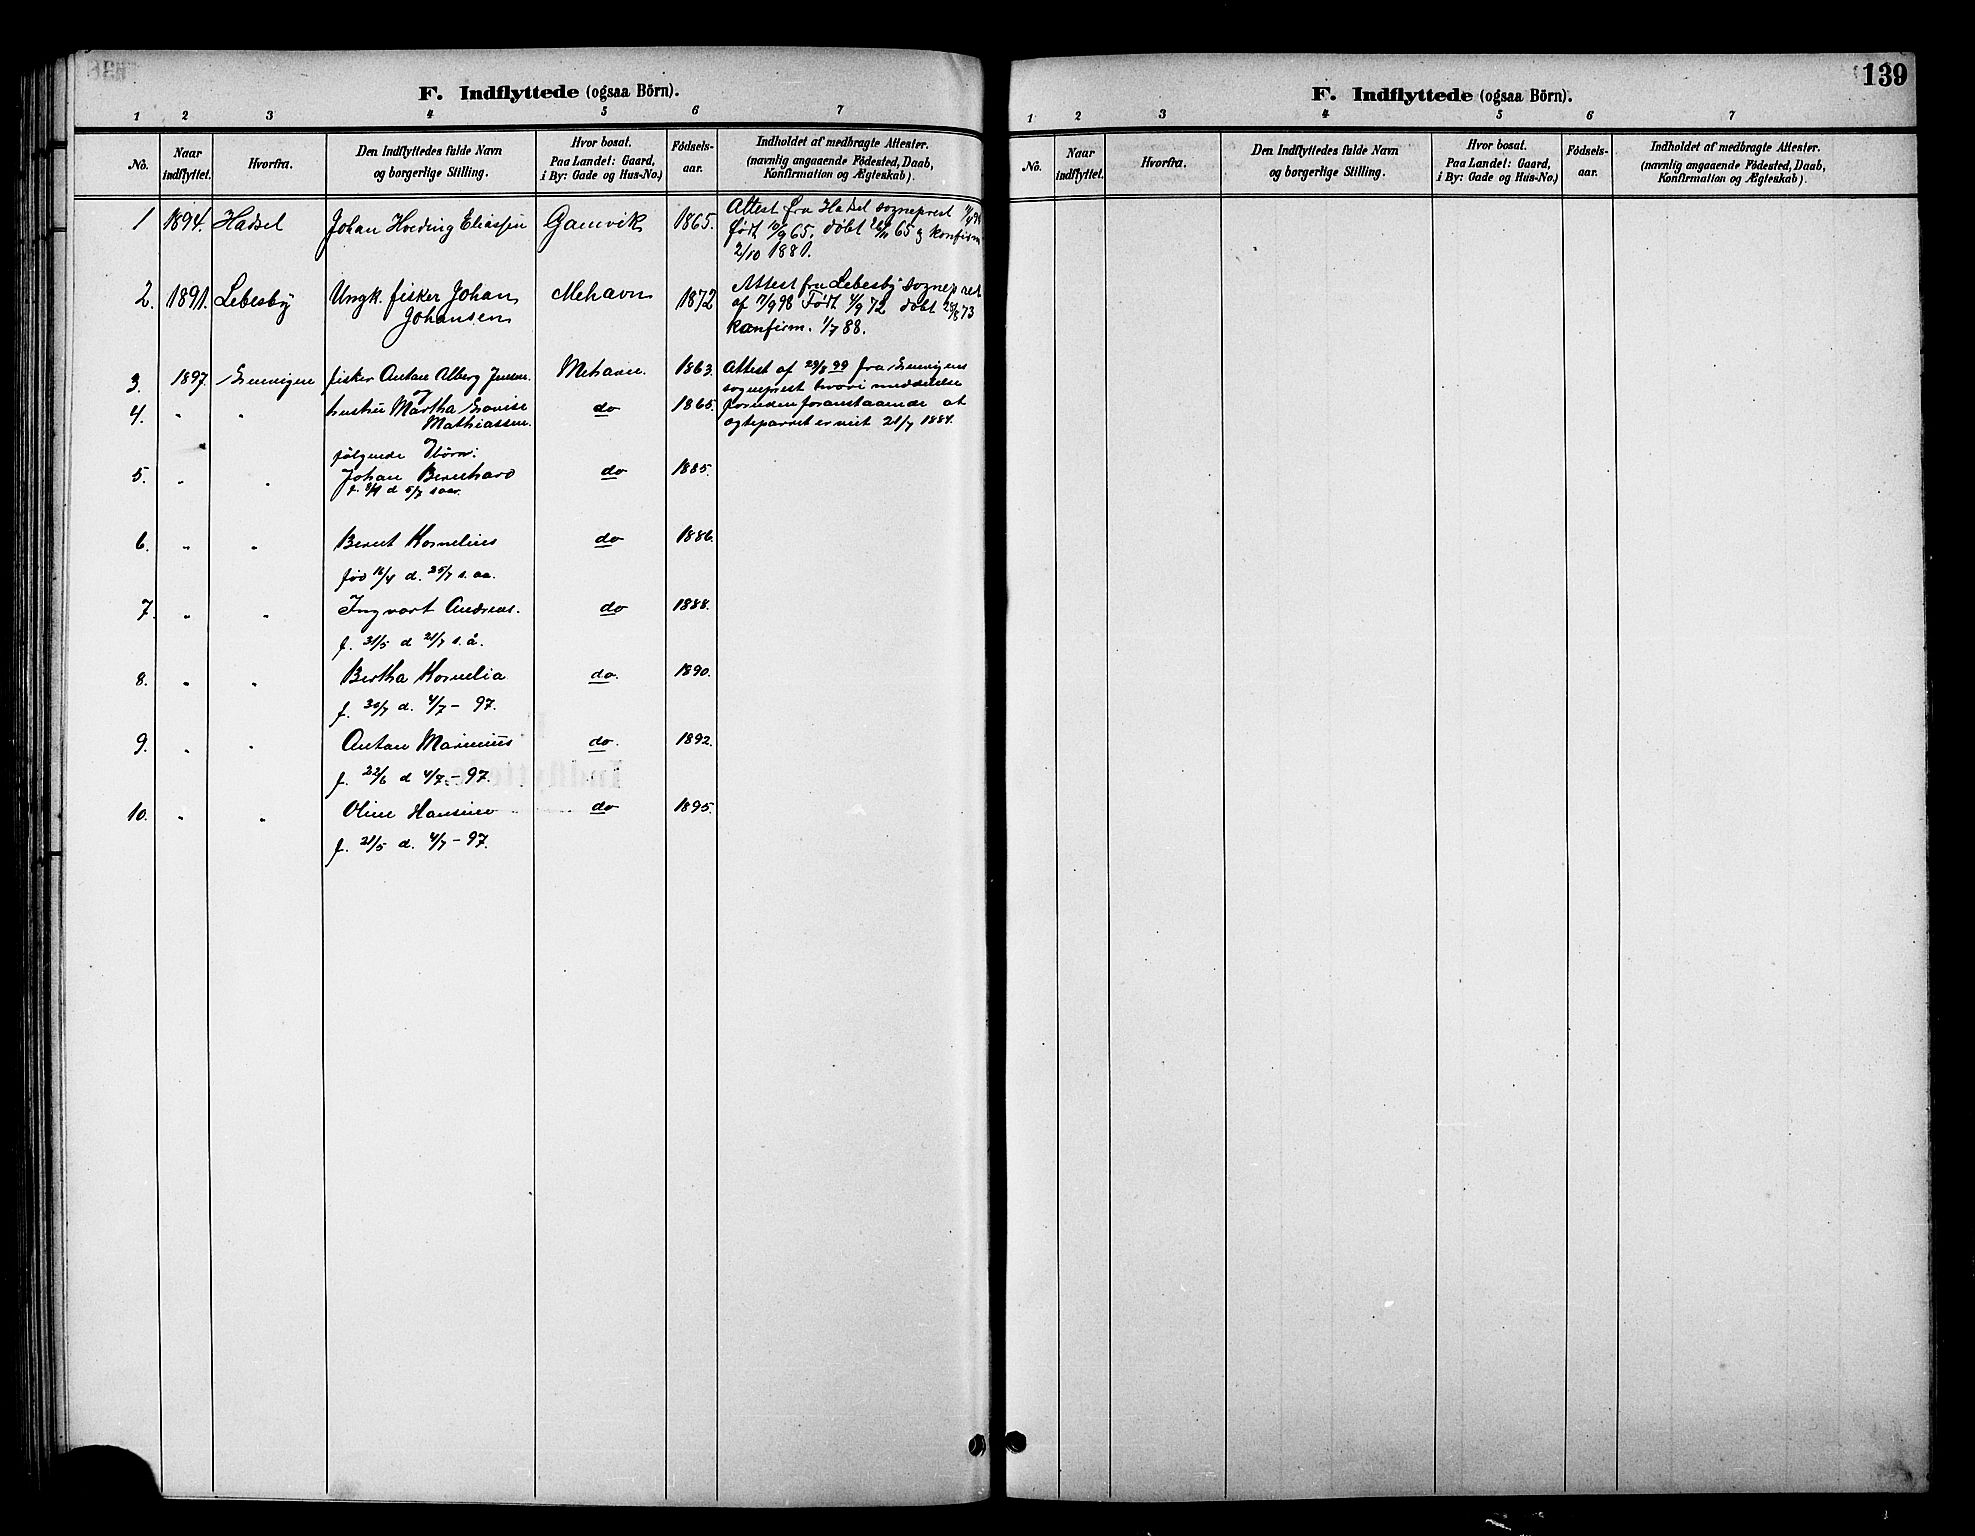 F. Indflyttede (ogsaa Börn).
1 2 3 4 5 6 7
No.
Naar indflyttet.
Hvorfra.
Den Indflyttedes fulde Navn
og borgerlige Stilling.
Hvor bosat.
Paa Landet: Gaard,
i By: Gade og Hus-No.)
Fødsels-
aar.
Indholdet af medbragte Attester.
(navnlig angaaende Fødested, Daab,
Konfirmation og Ægteskab).
1 1894. Hadsel Johan Hveding Eliassen Gamvik 1865. Attest fra Hadsel sogneprest
født 10/9 65. døbt 26/11 65 g konfirm
2/10 1881.
2. 1891. Lebesby Ungk. fisker Johan Mehavn 1872 Attest fra Lebesby sogneprest
Johansen af 7/9 98 Født 4/9 72 døbt 28/8 73
konfirm. 1/7 88.
3. 1897. fisker Antan Alberg Jensen. Mehavn. 1863. Attest af 29/8 99 fra
sogneprest hvori meddeles
4. " " hustru Martha do 1865. foruden foranstaaende at
Mathiassen. egteparret er viet 21/7 1884.
følgende Børn:
5. " " Johan Bernhard do 1885.
d 5/7 s aar.
6. " " Berut Kornelius do 1886.
fød 16/4 d. 25/7 s. aa.
7. " " Ingvart Andreas. do 1888.
f. 31/5 d 21/7 s. å.
8. " " Bertha Kornelia do. 1890.
f. 30/7 d. 4/7 - 97.
9. " " Antan Marinius do. 1892.
f. 22/6 d 4/7. - 97.
10. " " Oline Hansine do 1895.
f. 21/5 d. 4/7 - 97.
139
F. Indflyttede (ogsaa Börn).
1 2 3 4 5 6 7
No.
Naar indflyttet.
Hvorfra.
Den Indflyttedes fulde Navn
og borgerlige Stilling.
Hvor bosat.
Paa Landet: Gaard,
i By: Gade og Hus-No.)
Fødsels-
aar.
Indholdet af medbragte Attester.
(navnlig angaaende Fødested, Daab,
Konfirmation og Ægteskab).